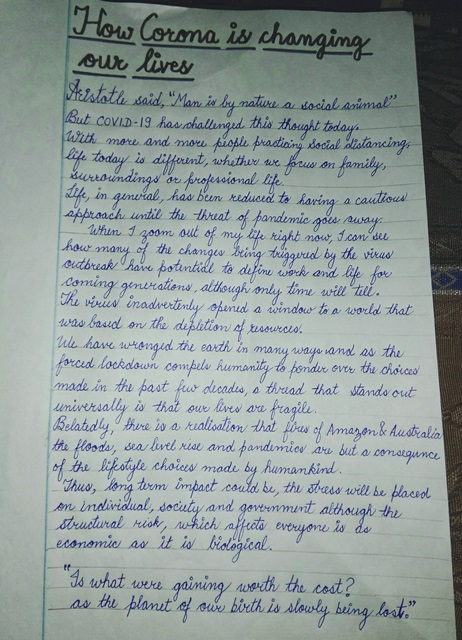 How Corona is changing
our lives
Aristotle said, "Man is by nature a social animal"
But COVID-19 has challenged this thought today.
With more and more people practicing social distancing,
life today is different, whether we focus on family,
surroundings or professional life.
Life, in general, has been reduced to having a cautious
approach until the threat of pandemic goes away.
When I zoom out of my life right now, I can see
how many of the changes being triggered by the virus
outbreak have potential to define work and life for
coming generations, although only time will tell.
The virus inadvertenly opened a window to a world that
was basid on the depletion of resources.
We have wronged the earth in many ways and as the
forced lockdown compels humanity to ponder over the choices
made in the past few decades, a thread that stands out
universally is that our lives are fragile.
Belatedly, there is a realisation that fires of Amazon & Australia
the floods, sea level rise and pandemics are but a consequnce
of the lifestyle choices made by humankind.
Thus, long term impact could be, the stress will be placed
on individual, society and government although the
structural risk, which affects everyone is as
economic as it is biological.
"Is what were gaining worth the cost?
as the planet of our birth is slowly being lost."